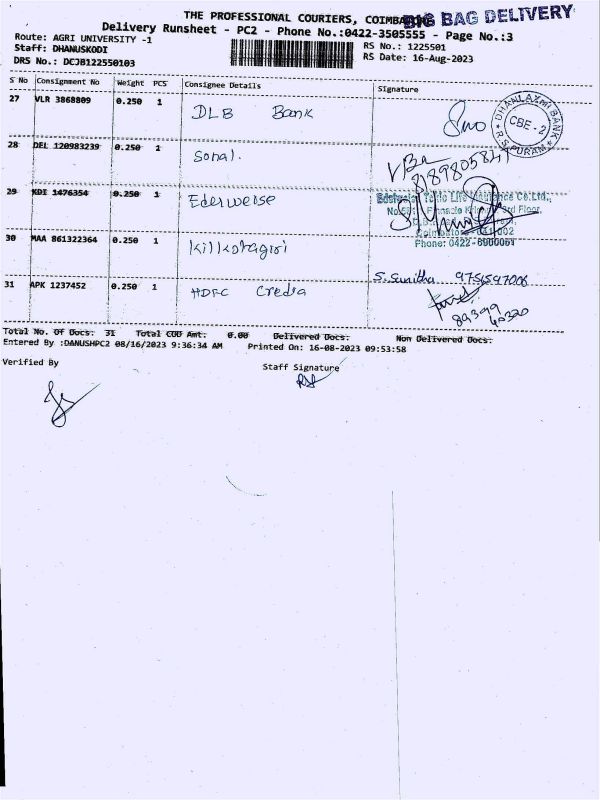 THE PROFESSIONAL COURIERS, COIMBA
BIG BAG DELIVERY
Delivery Runsheet - PC2 - Phone No.:0422-3505555 - Page No.:3
Route: AGRI UNIVERSITY -1
RS No.: 1225501
Staff: DHANUSKODI
RS Date: 16-Aug-2023
DRS No.: DCJB122550103
S No Consignment No Weight PCS Consignee Details Signature
27 VLR 3868809 0.250 1 DLB Bank
DHANLAXMI BANK
CBE - 2
R S PURAM
28 DEL 120983239 0.250 1 Sonal.
29 KDI 1476354 0.250 1 Ederweise
Edelweiss Tokio Life Insurance Co.Ltd.,
3rd Floor,
Phone: 0422-6000051
30 MAA 861322364 0.250 1 Killkotagiri
S. Sunitha 9756597006
31 APK 1237452 0.250 1 HDFC Credla
89399
40320
Total No. Of Docs: 31 Total COD Amt: 0.00 Delivered Docs: Non Delivered Docs:
Entered By :DANUSHPC2 08/16/2023 9:36:34 AM Printed On: 16-08-2023 09:53:58
Verified By Staff Signature